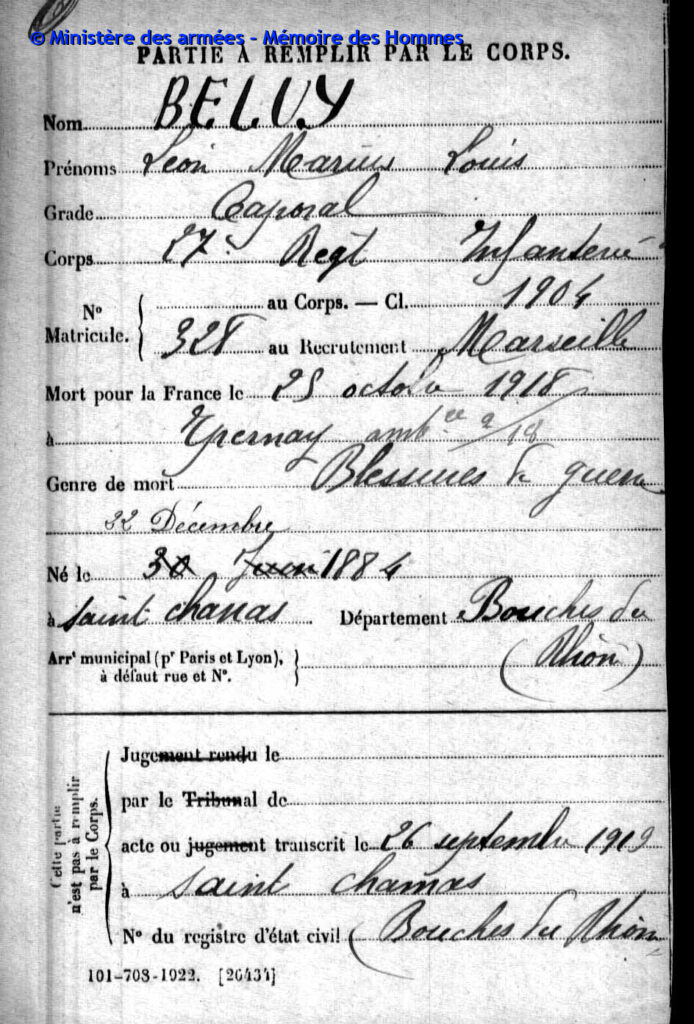 © Ministère des armées - Mémoire des Hommes
PARTIE À REMPLIR PAR LE CORPS.
Nom BELUY
Prénoms Léon Marius Louis
Grade Caporal
Corps 27e Regt Infanterie
No Matricule. { au Corps. — Cl. 1904
328 au Recrutement Marseille
Mort pour la France le 25 octobre 1918
à Epernay ambce 9/18
Genre de mort Blessures de guerre
22 Décembre
Né le 30 Juin 1884
à Saint Chamas Département Bouches du
(Rhône)
Arrt municipal (pr Paris et Lyon),
à défaut rue et No.
Cette partie
n'est pas à remplir
par le Corps.
Jugement rendu le
par le Tribunal de
acte ou jugement transcrit le 26 septembre 1919
à Saint Chamas
No du registre d'état civil (Bouches du Rhône
101-708-1922. [26434]